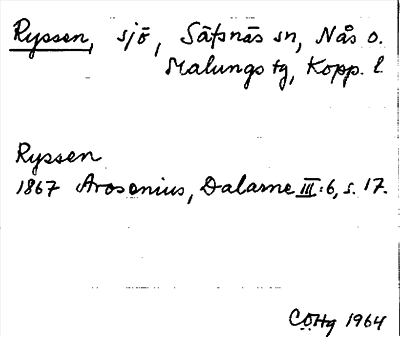 Ryssen, sjö, Säfsnäs sn, Nås o.
Malungs tg, Kopp. l.
Ryssen
1867 Arosenius, Dalarne III:6, s. 17.
CÖHg 1964